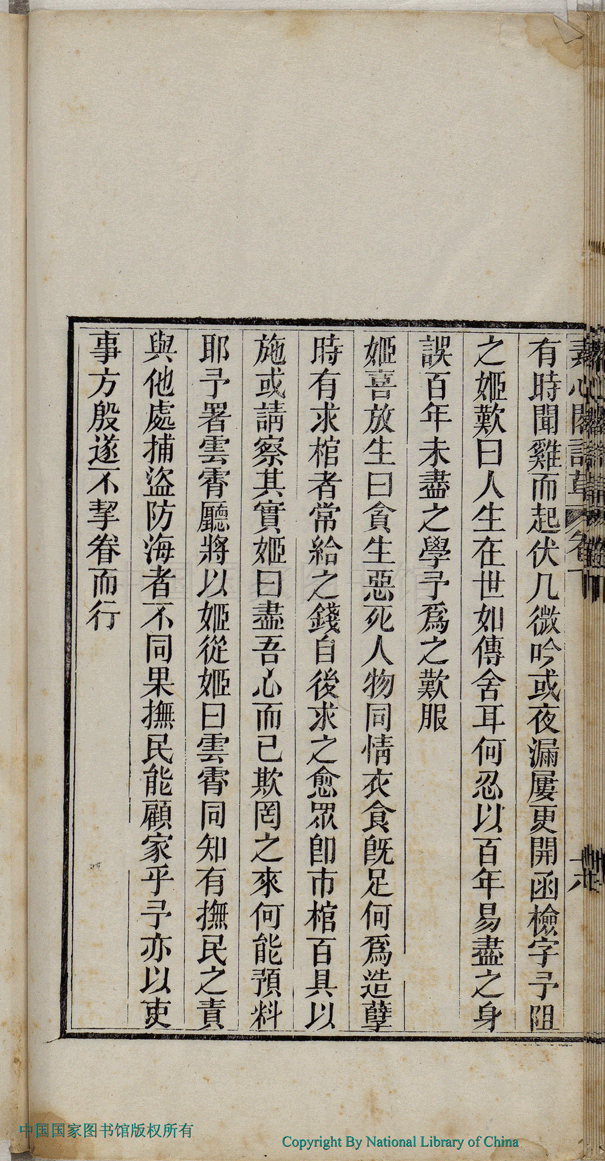 有時聞雞而起伏几微吟或夜漏屢更開函檢字予阻
之姬歎曰人生在世如傳舍耳何忍以百年易盡之身
誤百年未盡之學予爲之歎服
姬喜放生曰貪生惡死人物同情衣食既足何爲造孽
時有求棺者常給之錢自後求之愈眾卽市棺百具以
施或請察其實姬曰盡吾心而已欺罔之來何能預料
耶予署雲霄廳將以姬從姬曰雲霄同知有撫民之責
與他處捕盜防海者不同果撫民能顧家乎予亦以吏
事方殷遂不挈眷而行
中国国家图书馆版权所有
Copyright By National Library of China